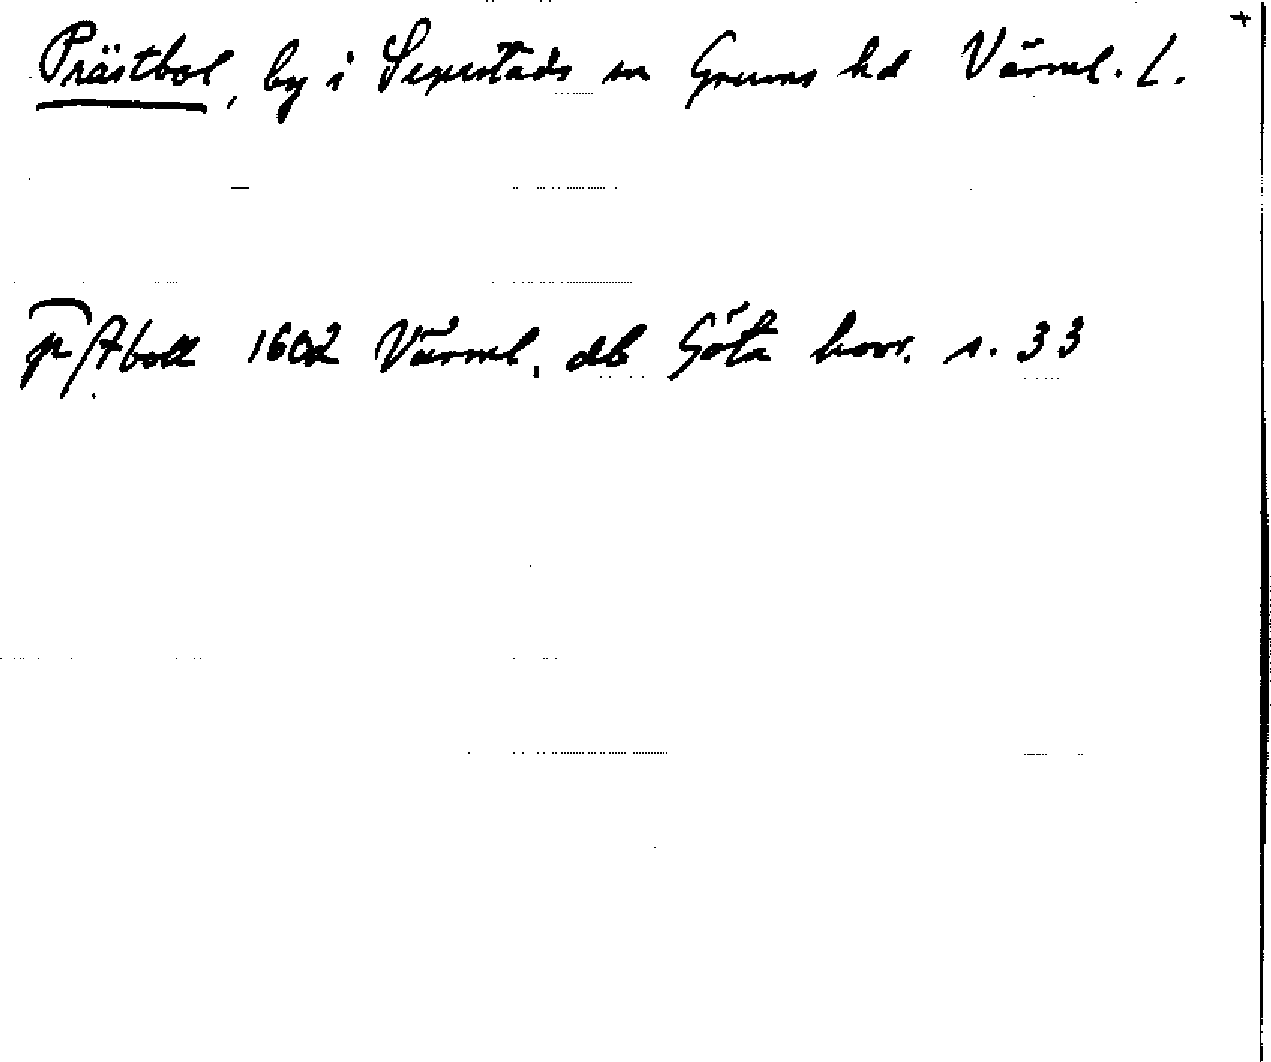 Prästbol, by i Segerstads sn Grums hd Värml. L.
p̄stboll 1602 Värml. db Göta hovr. s. 33